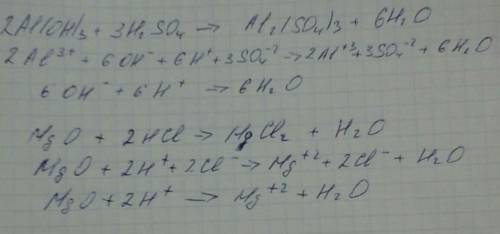 2Al(OH)3 + 3H2SO4 → Al2(SO4)3 + 6H2O
2Al³⁺ + 6OH⁻ + 6H⁺ + 3SO4⁻² → 2Al⁺³ + 3SO4⁻² + 6H2O
6OH⁻ + 6H⁺ → 6H2O
MgO + 2HCl → MgCl2 + H2O
MgO + 2H⁺ + 2Cl⁻ → Mg⁺² + 2Cl⁻ + H2O
MgO + 2H⁺ → Mg⁺² + H2O